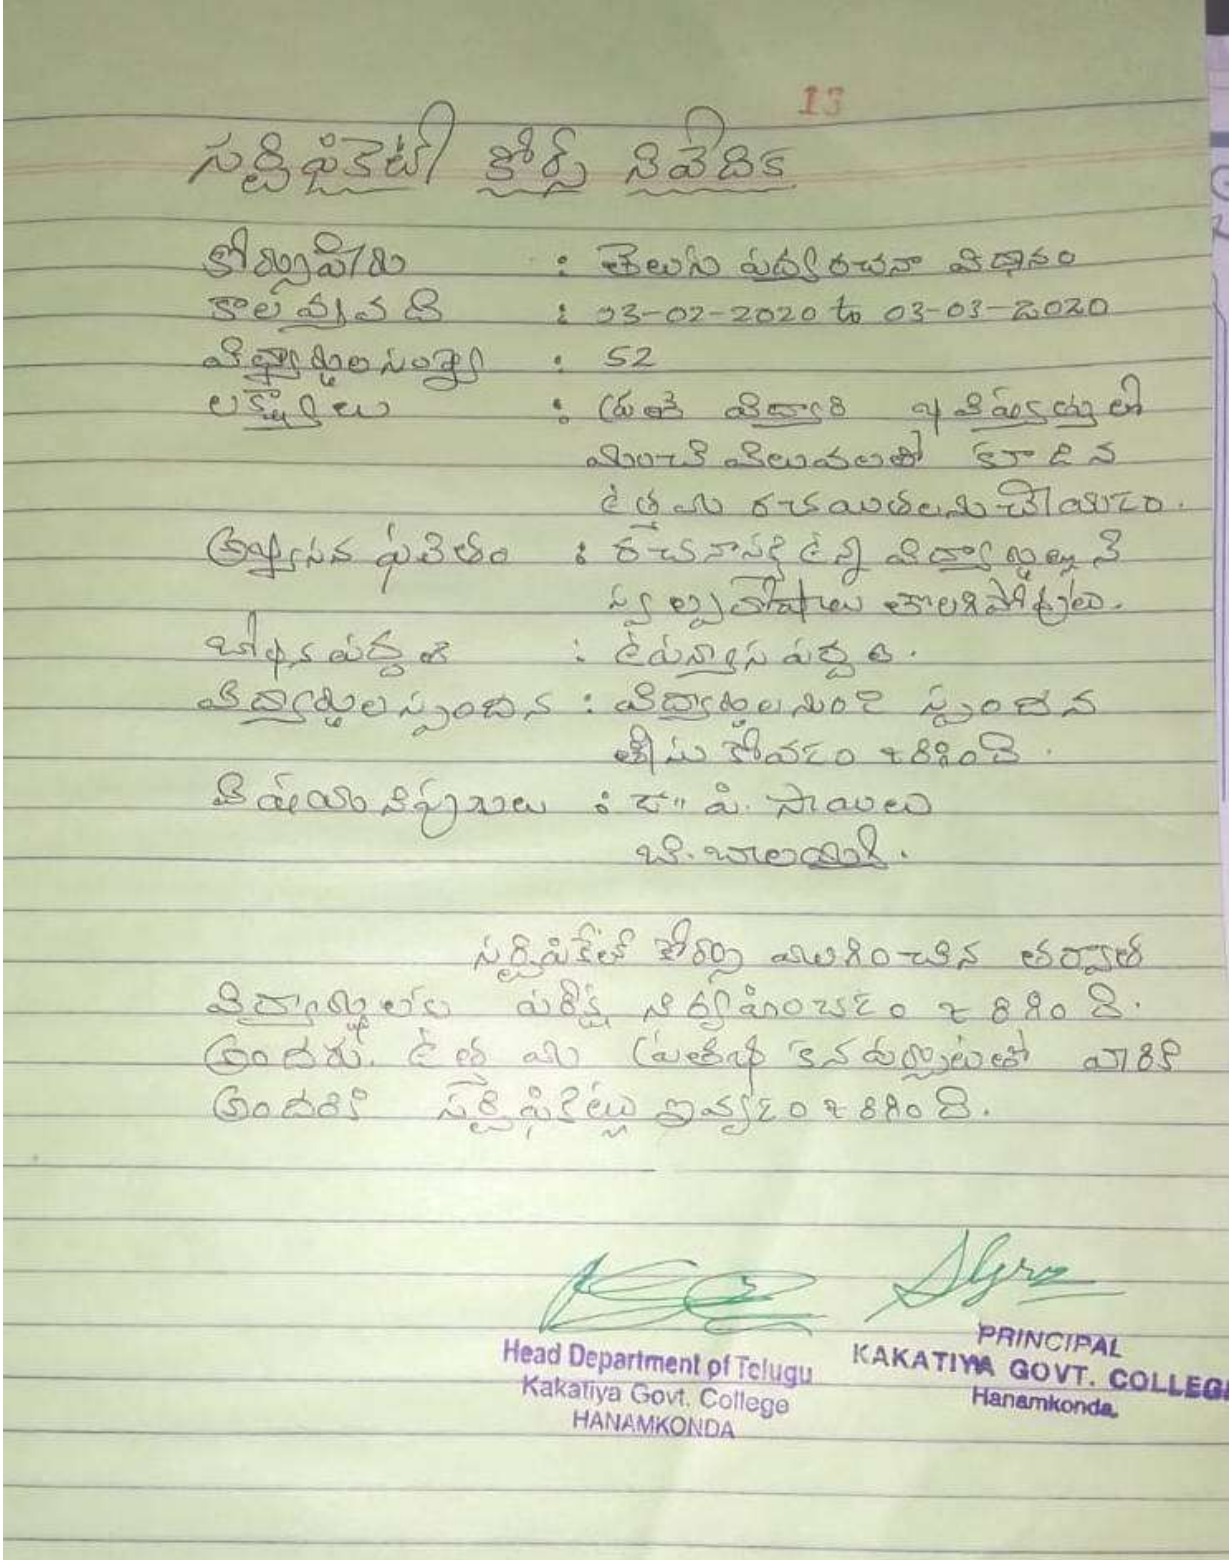 13
సర్టిఫికెట్ కోర్సు నివేదిక
కోర్సుపేరు : తెలుగు పద్యరచనా విధానం
కాలవ్యవధి : 03-02-2020 to 03-03-2020
విద్యార్థుల సంఖ్య : 52
లక్ష్యాలు : ప్రతి విద్యార్థి భవిష్యత్తులో
మంచి విలువలతో కూడిన
ఉత్తమ రచయితలను చేయుటం.
అభ్యసన ఫలితం : రచనాసక్తి ఉన్న విద్యార్థులు
బోధన పద్ధతి : ఉపన్యాస పద్ధతి.
విద్యార్థుల స్పందన : విద్యార్థుల నుండి స్పందన
తీసుకోవడం జరిగింది.
విషయ నిపుణులు : డా" పి. సాయిలు
బి. బాలయ్య.
సర్టిఫికేట్ కోర్సు ముగించిన తర్వాత
విద్యార్థులకు పరీక్ష నిర్వహించడం జరిగింది.
అందరు ఉత్తమ ప్రతిభ కనబర్చుటతో వారికి
అందరికి సర్టిఫికేట్లు ఇవ్వడం జరిగింది.
Head Department of Telugu
Kakatiya Govt. College
HANAMKONDA
PRINCIPAL
KAKATIYA GOVT. COLLEGE
Hanamkonda.